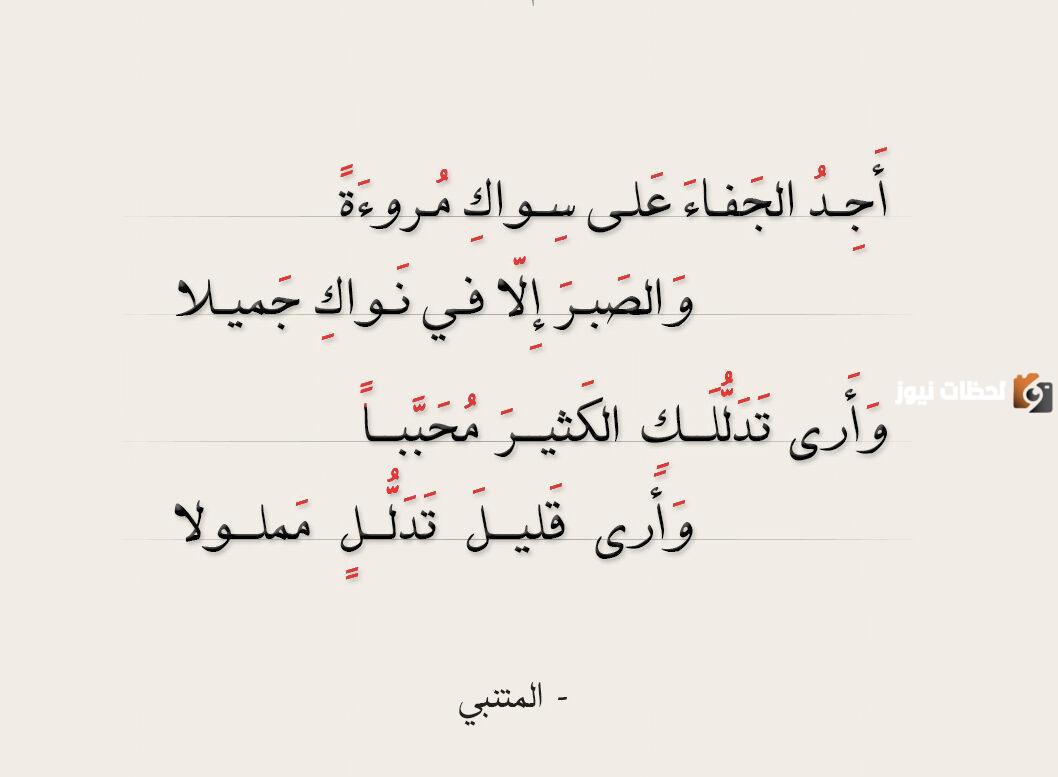 أَجِدُ الجَفاءَ عَلى سِواكِ مُروءَةً
وَالصَبرَ إِلّا في نَواكِ جَميلا
وَأَرى تَدَلُّلَـكِ الكَثيرَ مُحَبَّباً
وَأَرى قَليلَ تَدَلُّلٍ مَملولا
- المتنبي
لحظات نيوز